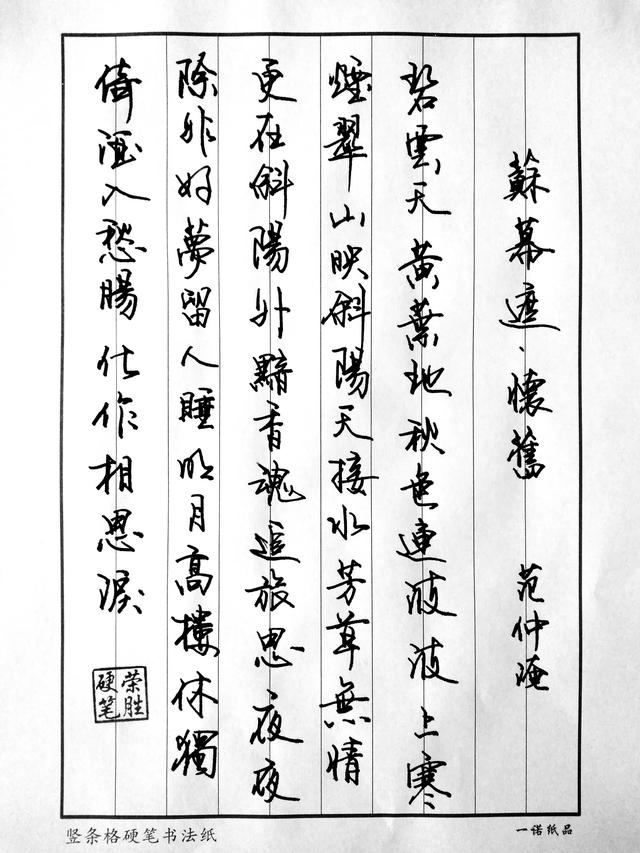 蘇幕遮、懷舊 范仲淹
碧雲天黄葉地秋色連波波上寒
煙翠山映斜陽天接水芳草無情
更在斜陽外黯香魂追旅思夜夜
除非好夢留人睡明月高樓休獨
倚酒入愁腸化作相思淚
荣胜
硬笔
竖条格硬笔书法纸
一诺纸品